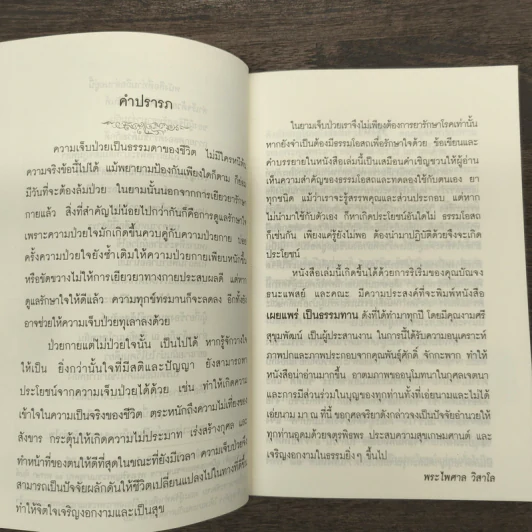 คำปรารภ
ความเจ็บป่วยเป็นธรรมดาของชีวิต ไม่มีใครหนี
ความจริงข้อนี้ไปได้ แม้พยายามป้องกันเพียงใดก็ตาม
มีวันที่จะต้องล้มป่วย ในยามนั้นนอกจากการเยียวยารักษา
กายแล้ว สิ่งที่สำคัญไม่น้อยไปกว่ากันก็คือการดูแลรักษาใจ
เพราะความป่วยใจมักเกิดขึ้นควบคู่กับความป่วยกาย
ครั้งความป่วยใจยังซ้ำเติมให้ความป่วยกายเพียบหนักขึ้น
หรือขัดขวางไม่ให้การเยียวยาทางกายประสบผลดี แต่หาก
ดูแลรักษาใจให้ดีแล้ว ความทุกข์ทรมานก็จะลดลง อีกทั้งยัง
อาจช่วยให้ความเจ็บป่วยทุเลาลงด้วย
ป่วยกายแต่ไม่ป่วยใจนั้น เป็นไปได้ หากรู้จักวางใจ
ให้เป็น ยิ่งกว่านั้นใจที่มีสติและปัญญา ยังสามารถหา
ประโยชน์จากความเจ็บป่วยได้ด้วย เช่น ทำให้เกิดความ
เข้าใจในความเป็นจริงของชีวิต ตระหนักถึงความไม่เที่ยงของ
สังขาร กระตุ้นให้เกิดความไม่ประมาท เร่งสร้างกุศล และ
ทำหน้าที่ของตนให้ดีที่สุดในขณะที่ยังมีเวลา ความเจ็บป่วยจึง
สามารถเป็นปัจจัยผลักดันให้ชีวิตเปลี่ยนแปลงไปในทางที่ดีขึ้น
ทำให้จิตใจเจริญงอกงามและเป็นสุข
ในยามเจ็บป่วยเราจึงไม่เพียงต้องการยารักษาโรคเท่านั้น
หากยังจำเป็นต้องมีธรรมโอสถเพื่อรักษาใจด้วย ข้อเขียนและ
คำบรรยายในหนังสือเล่มนี้เป็นเสมือนคำเชิญชวนให้ผู้อ่าน
เห็นความสำคัญของธรรมโอสถและทดลองใช้กับตนเอง ยา
ทุกชนิด แม้ว่าเราจะรู้สรรพคุณและส่วนประกอบ แต่หาก
ไม่นำมาใช้กับตัวเอง ก็หาเกิดประโยชน์อันใดไม่ ธรรมโอสถ
ก็เช่นกัน เพียงแค่รู้ยังไม่พอ ต้องนำมาปฏิบัติด้วยจึงจะเกิด
ประโยชน์
หนังสือเล่มนี้เกิดขึ้นได้ด้วยการริเริ่มของคุณบัณจง
ธนะแพสย์ และคณะ มีความประสงค์ที่จะพิมพ์หนังสือ
เผยแพร่ เป็นธรรมทาน ดังที่ได้ทำมาทุกปี โดยมีคุณงามศรี
สุขุมพัฒน์ เป็นผู้ประสานงาน ในการนี้ได้รับความอนุเคราะห์
ภาพปกและภาพประกอบจากคุณพันธุ์ศักดิ์ จักกะพาก ทำให้
หนังสือน่าอ่านมากขึ้น อาตมภาพขออนุโมทนาในกุศลเจตนา
และการมีส่วนร่วมในบุญของทุกท่านทั้งที่เอ่ยนามและไม่ได้
เอ่ยนาม มา ณ ที่นี้ ขอกุศลจริยาดังกล่าวจงเป็นปัจจัยอำนวยให้
ทุกท่านอุดมด้วยจตุรพิธพร ประสบความสุขเกษมศานต์ และ
เจริญงอกงามในธรรมยิ่งๆ ขึ้นไป
พระไพศาล วิสาโล